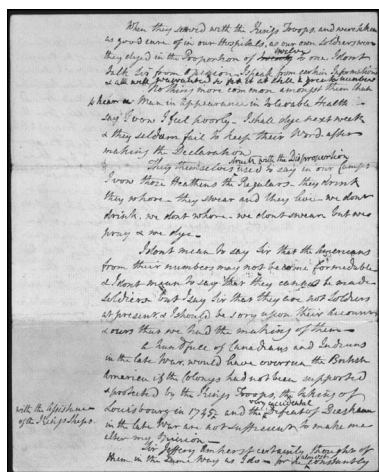 When they served with the King's Troops, and were taken
as good care of in our Hospitals, as our own Soldiers were
they dyed in the Proportion of twelve to one. I dont
talk Sir from I speak from certain Information
& all will
Nothing more common amongst them than
to hear a Man in Appearance in tolerable Health
say I vow I feel poorly. I shall dye next week
& they seldom fail to keep their Word after
making the Declaration
struck with the Disproportion
They themselves used to say in our Camps
I vow those Heathens the Regulars. they drink
they whore - they swear and they live - we dont
drink, we dont whore - we dont swear but we
pray & we dye -
I dont mean to say Sir that the Americans
from their numbers may not become formidable
& I dont mean to say that they cannot be made
Soldiers but I say Sir that they are not Soldiers
at present, & I should be sory upon their account
& ours that we had the making of them -
a handfull of Canadians and Indians
in the late War, would have overrun the British
America if the Colonys had not been supported
& protected by the King's Troops, the taking of
Louisbourg in 1745 and the very accidental Defeat of Dieskau
with the assistance
of the Kings Ships.
in the late War are not sufficient to make me
alter my Opinion -
Sir Jeffery Amherst certainly thought of
them in the same Way as I do - for he almost constantly